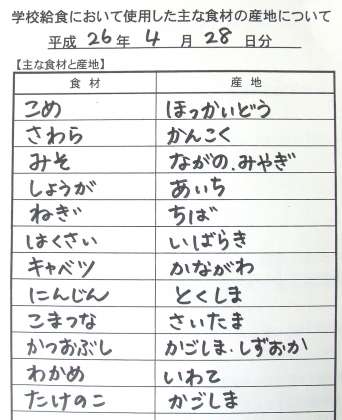 学校給食において使用した主な食材の産地について
平成 26 年 4 月 28 日分
【主な食材と産地】
食材 産地
こめ ほっかいどう
さわら かんこく
みそ ながの.みやぎ
しょうが あいち
ねぎ ちば
はくさい いばらき
キャベツ かながわ
にんじん とくしま
こまつな さいたま
かつおぶし かごしま.しずおか
わかめ いわて
たけのこ かごしま